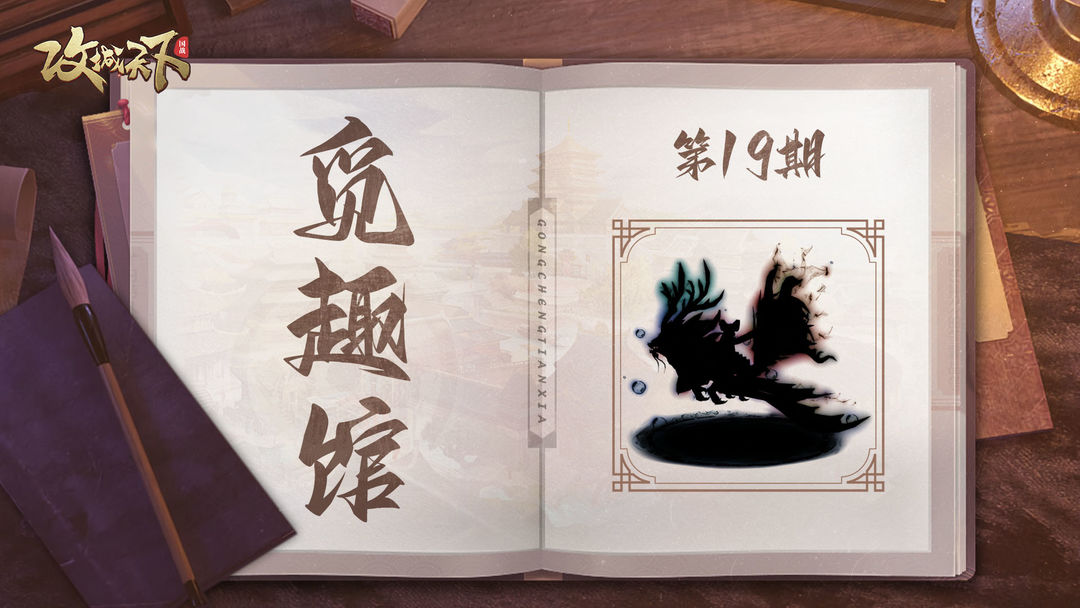 攻城天下
国战
觅趣馆
GONGCHENGTIANXIA
第19期